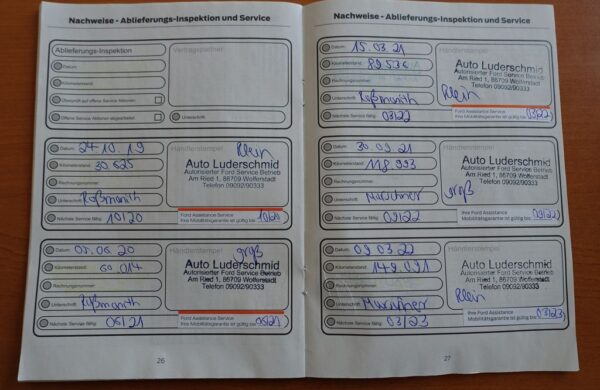 Nachweise - Ablieferungs-Inspektion und Service
Ablieferungs-Inspektion
Datum:
Kilometerstand:
Überprüft auf offene Service Aktionen:
Offene Service Aktionen abgearbeitet:
Vertragspartner:
Unterschrift:
Datum: 24.10.19
Kilometerstand: 30.625
Rechnungsnummer:
Unterschrift: Roßmanith
Nächste Service fällig: 10/20
Händlerstempel:
Klein
Auto Luderschmid
Autorisierter Ford Service Betrieb
Am Ried 1, 86709 Wolferstadt
Telefon 09092/90333
Ford Assistance Service
Ihre Mobilitätsgarantie ist gültig bis: 10/20
Datum: 05.06.20
Kilometerstand: 60.014
Rechnungsnummer:
Unterschrift: Roßmanith
Nächste Service fällig: 06/21
Händlerstempel:
groß
Auto Luderschmid
Autorisierter Ford Service Betrieb
Am Ried 1, 86709 Wolferstadt
Telefon 09092/90333
Ford Assistance Service
Ihre Mobilitätsgarantie ist gültig bis: 06/21
26
Nachweise - Ablieferungs-Inspektion und Service
Datum: 15.03.21
Kilometerstand: 89.536
Rechnungsnummer:
Unterschrift: Roßmanith
Nächste Service fällig: 03/22
Händlerstempel:
Auto Luderschmid
Autorisierter Ford Service Betrieb
Am Ried 1, 86709 Wolferstadt
Telefon 09092/90333
Klein
Ford Assistance Service
Ihre Mobilitätsgarantie ist gültig bis: 03/22
Datum: 30.09.21
Kilometerstand: 118.993
Rechnungsnummer:
Unterschrift:
Nächste Service fällig: 09/22
Händlerstempel:
Auto Luderschmid
Autorisierter Ford Service Betrieb
Am Ried 1, 86709 Wolferstadt
Telefon 09092/90333
groß
Ihre Ford Assistance
Mobilitätsgarantie ist gültig bis: 09/22
Datum: 09.03.22
Kilometerstand: 149.091
Rechnungsnummer:
Unterschrift:
Nächste Service fällig: 03/23
Händlerstempel:
Auto Luderschmid
Autorisierter Ford Service Betrieb
Am Ried 1, 86709 Wolferstadt
Telefon 09092/90333
Klein
Ihre Ford Assistance
Mobilitätsgarantie ist gültig bis: 03/23
27